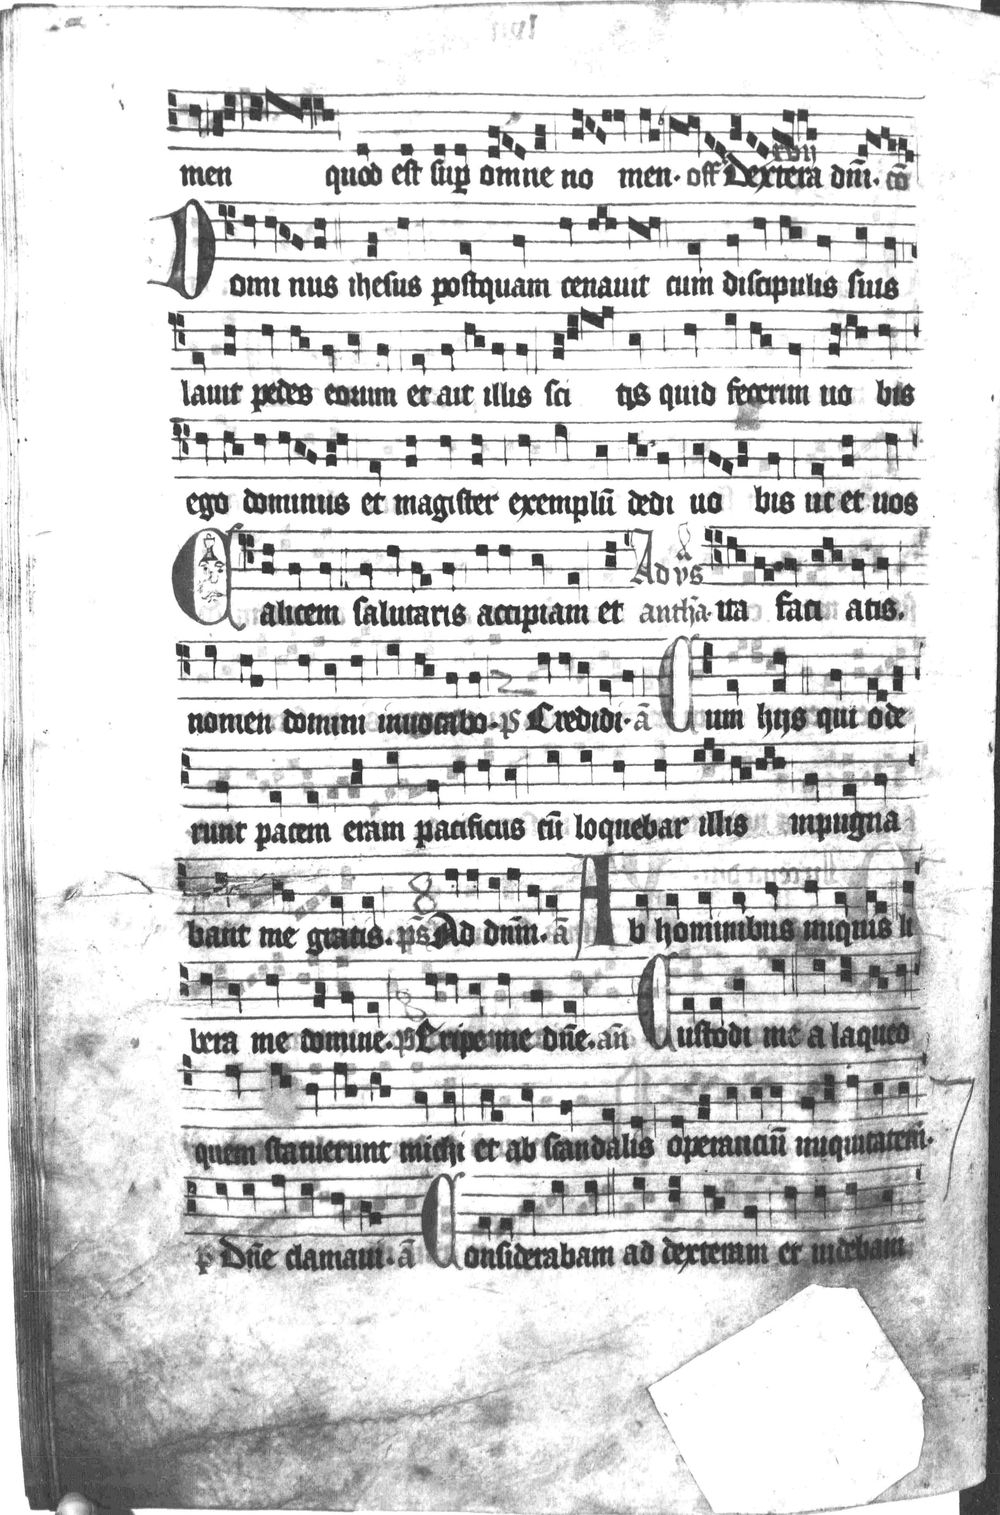 men quod est sup omne no men. off Dextera dnı. co
xvıȷ
Domi nus ihesus postquam cenauit cum discipulis suis
lauit pedes eorum et ait illis sci tis quid fecerim uo bis
ego dominus et magister exemplū dedi uo bis ut et uos
Calicem salutaris accipiam et antha. ita faci atis.
Ad vs
nomen domini inuocabo. ps Credidi. ā Cum hijs qui ode
runt pacem eram pacificus cū loquebar illis inpugna
bant me gratis. ps Ad dnm. ā Ab hominibus iniquis li
bera me domine. ps Eripe me dne. an Custodi me a laqueo
quem statuerunt michi et ab scandalis operanciū iniquitatem.
p Dne clamaui. ā Considerabam ad dexteram et uidebam